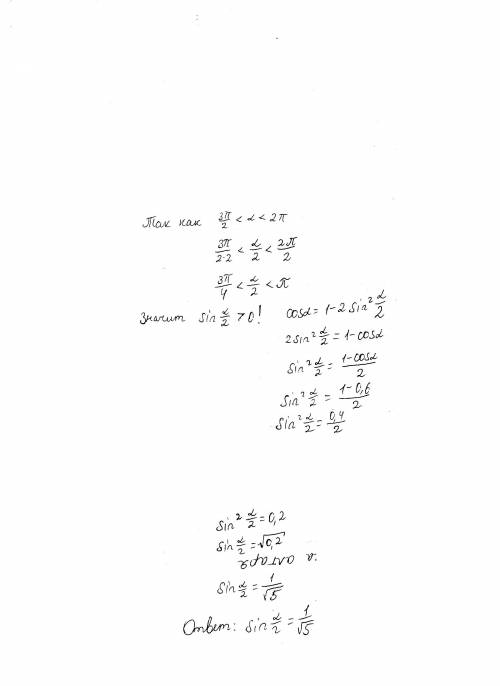 Так как 3π/2 < α < 2π
3π/2·2 < α/2 < 2π/2
3π/4 < α/2 < π
Значит sin α/2 > 0!
cosα = 1 - 2 sin² α/2
2sin² α/2 = 1 - cosα
sin² α/2 = 1-cosα/2
sin² α/2 = 1-0,6/2
sin² α/2 = 0,4/2
sin² α/2 = 0,2
sin α/2 = √0,2
sin α/2 = 1/√5
Ответ: sin α/2 = 1/√5